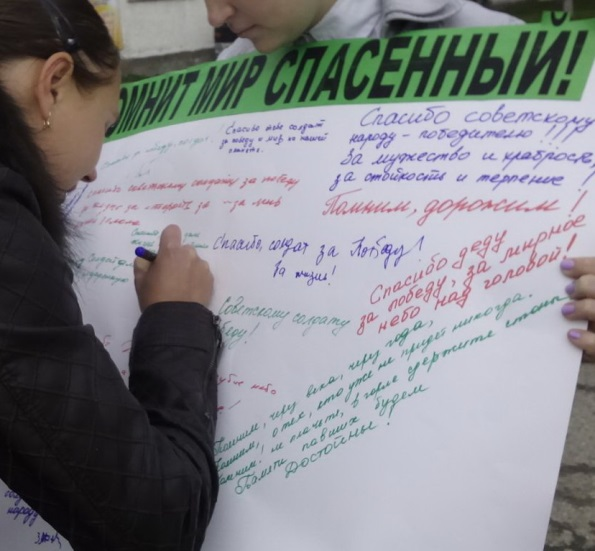 ОМНИТ МИР СПАСЕННЫЙ!
Спасибо советскому
народу - победителю!!!
За мужество и храбрость,
за стойкость и терпение!
Помним, дорожим!
Спасибо советскому солдату за победу
Спасибо, солдат за Победу!
За жизнь!
Спасибо деду
за победу, за мирное
небо над головой!
Советскому солдату
беду!
небо
Помним, через века, через года,
Помним, о тех, кто уже не придет никогда.
Помним! не плачьте, в горле сдержите стоны
Памяти павших будем
Достойны!
народу